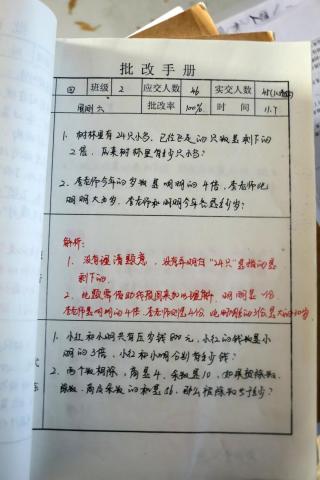 批改手册
四 班级 2 应交人数 46 实交人数 45
周测六 批改率 100% 时间 11.7
1. 树林里有24只小鸟,已经飞走的只数是剩下的
2倍,原来树林里有多少只小鸟?
2. 李老师今年的岁数是明明的4倍,李老师比
明明大30岁,李老师和明明今年各是多少岁?
解析:
1. 没有理清题意,没有弄明白“24只”是指的是
剩下的.
2. 此题需借助线段图来加以理解. 明明是一份
李老师是明明的4倍,李老师则是4份,比明明的3份是大的30岁
1. 小红和小明共有压岁钱800元,小红的钱数是小
明的3倍,小红和小明分别有多少钱?
2. 两个数相除,商是4,余数是10,如果被除数、
除数、商及余数的和是
那么被除数是多少?